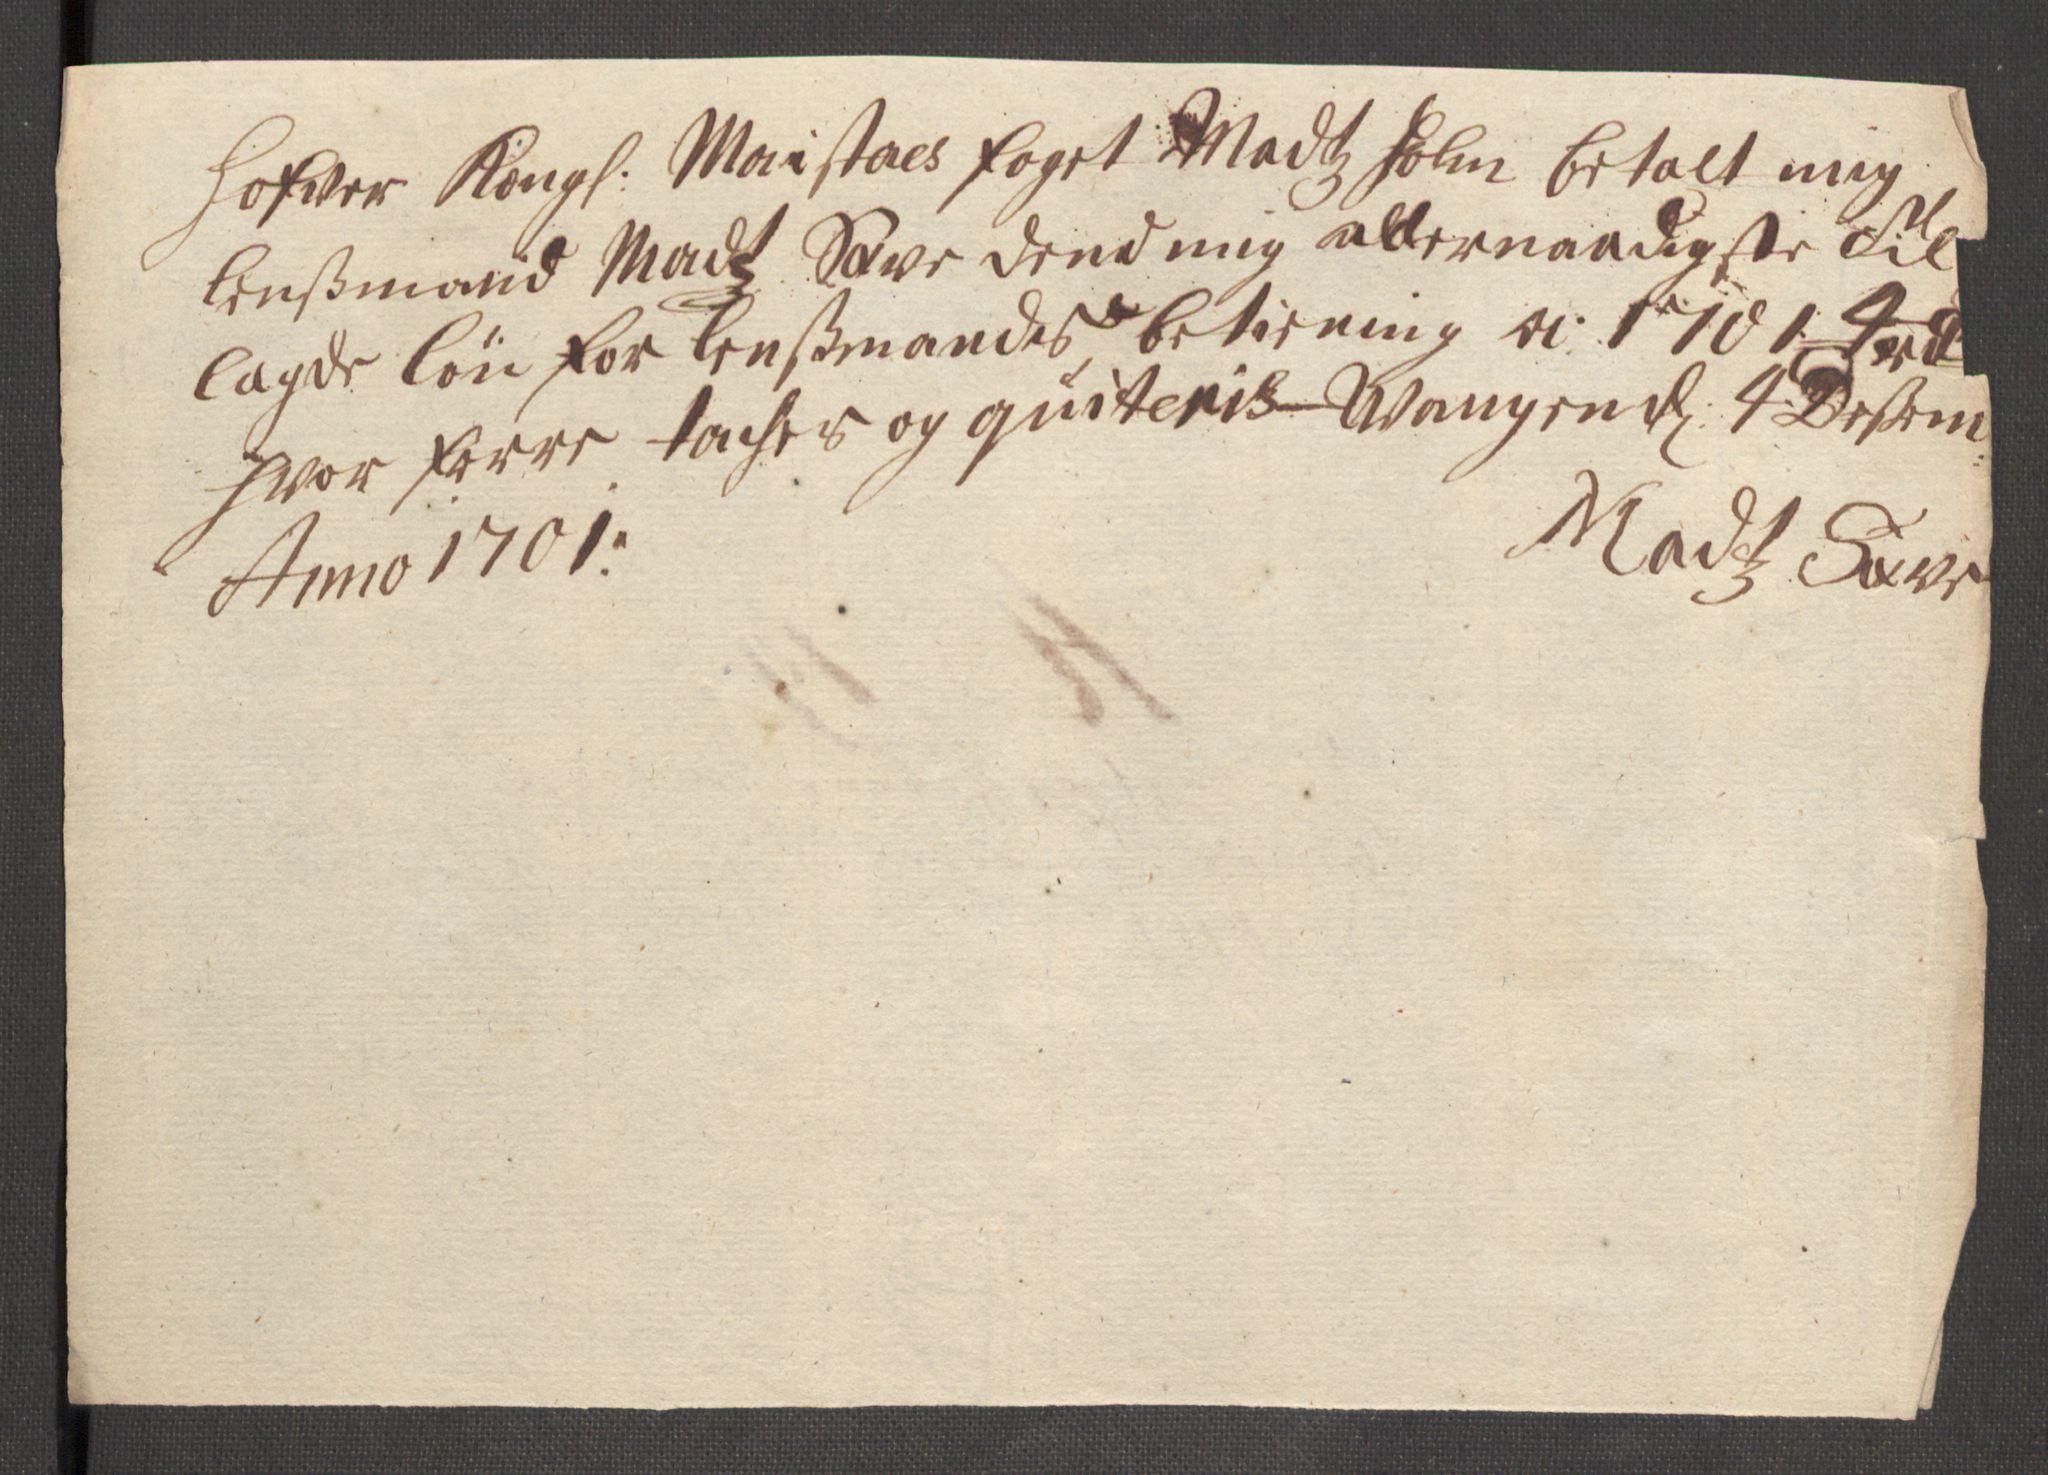 Hafver Kongl: Maistaes foget Madtz Holm betalt mig
lensßmand Madtz Saxe dend mig allernaadigste til
lagde lön for lensßmandes betiening a: 1701 4 rd
hvor forre tackes og quiteris Wangen d. 4 Desem:
Anno 1701:
Madtz Saxe